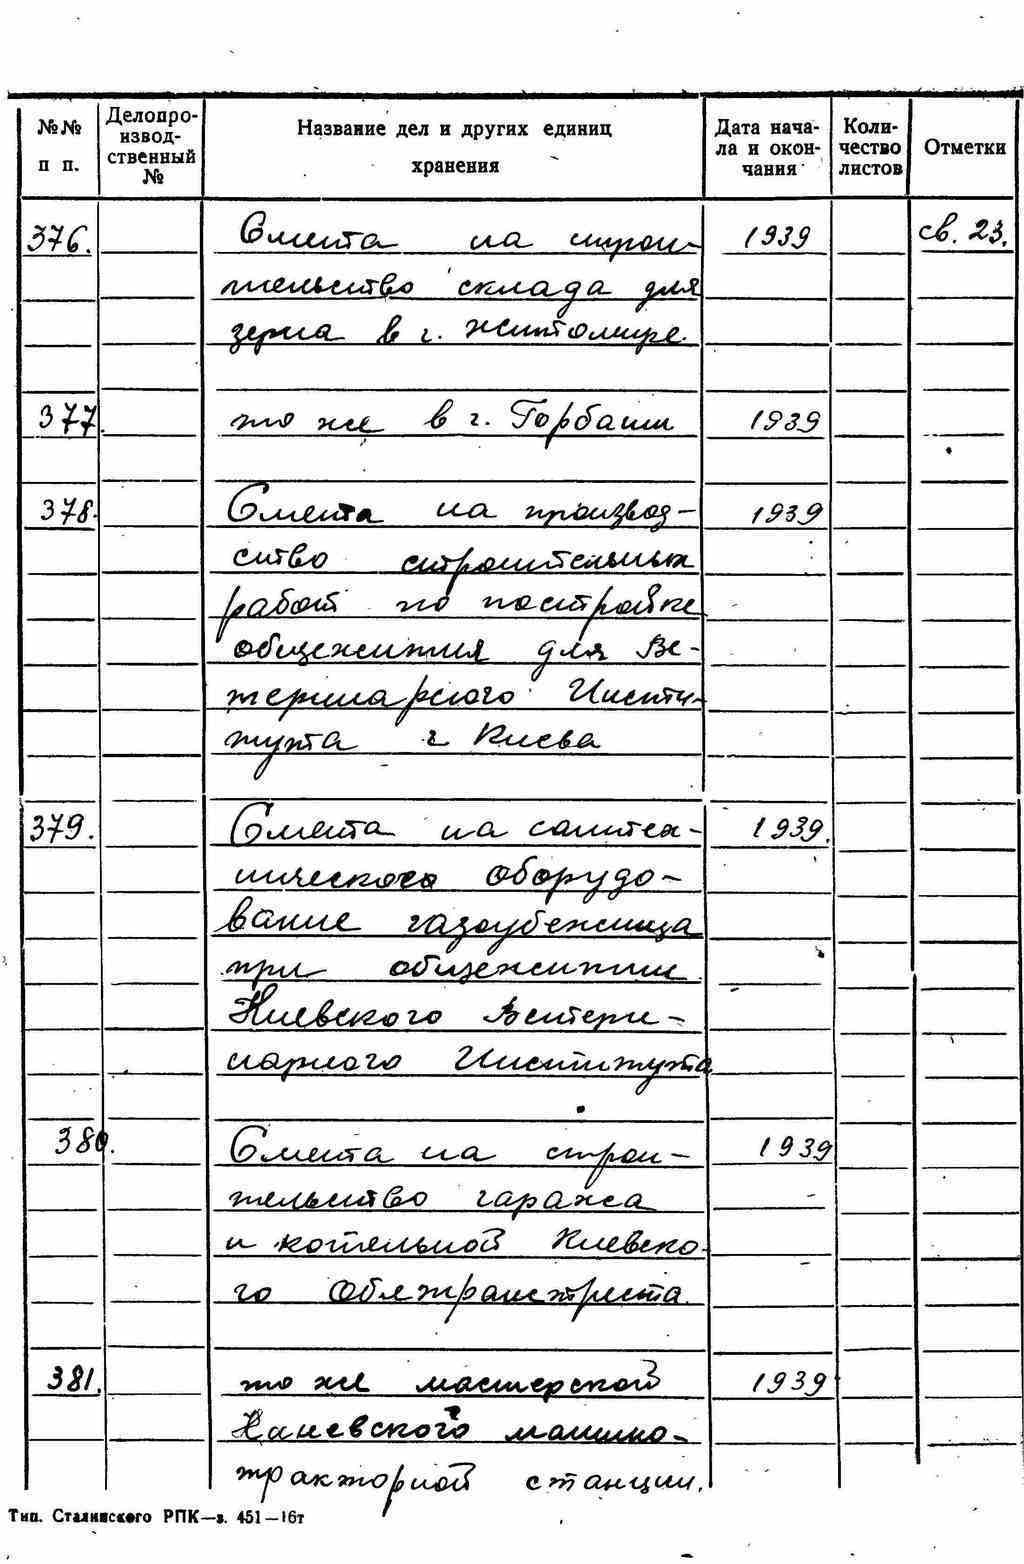 №№ п п. Делопро-изводственный № Название дел и других единиц хранения Дата начала и окончания Количество листов Отметки
376. Смета на строи- 1939 св. 23.
тельство склада для
зерна в г. Житомире.
377. то же в г. Горбаши 1939
378. Смета на производ- 1939
ство строительных
работ по постройке
общежития для Ве-
теринарского Инсти-
тута г Киева
379. Смета на сантех- 1939.
нического оборудо-
вание газоубежища
при общежитии
Киевского Ветери-
нарного Института
380. Смета на строи- 1939
тельство гаража
и котельной Киевско-
го Облжтранстреста.
381. то же мастерской 1939
Каневского машино-
тракторной станции.
Тип. Сталинского РПК—з. 451—16т